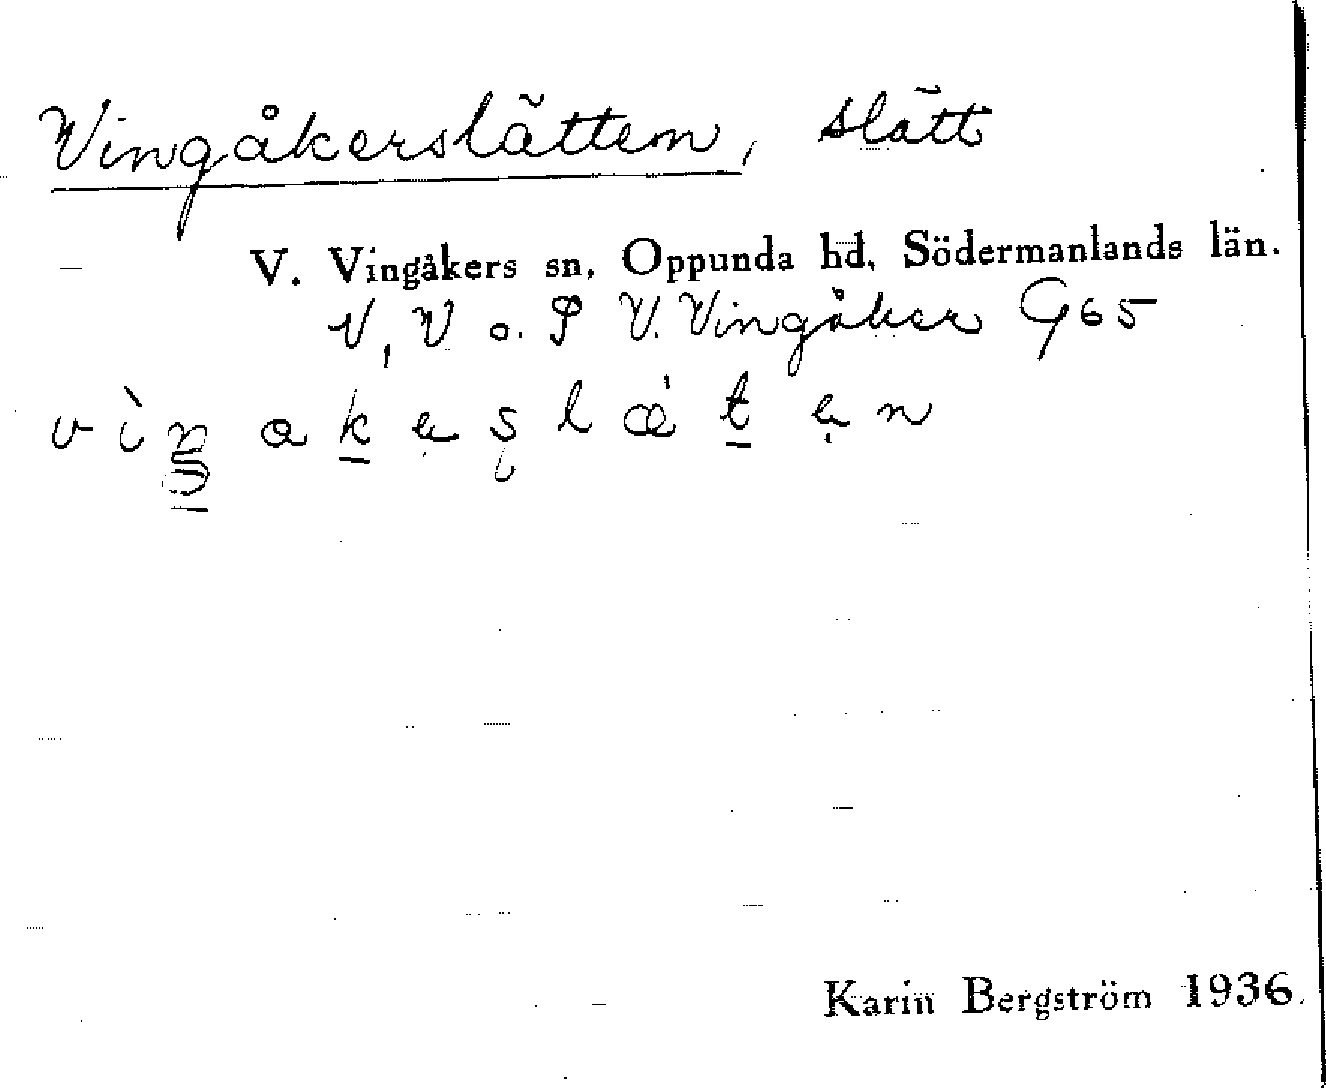 Vingåkerslätten, slätt
V. Vingåkers sn, Oppunda hd, Södermanlands län.
N, V o. S V. Vingåker G65
Karin Bergström 1936.